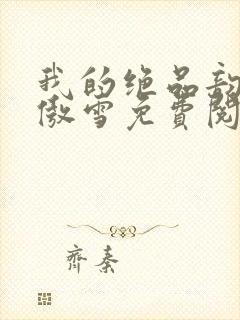 我的绝品
傲雪免費閱
齊秦